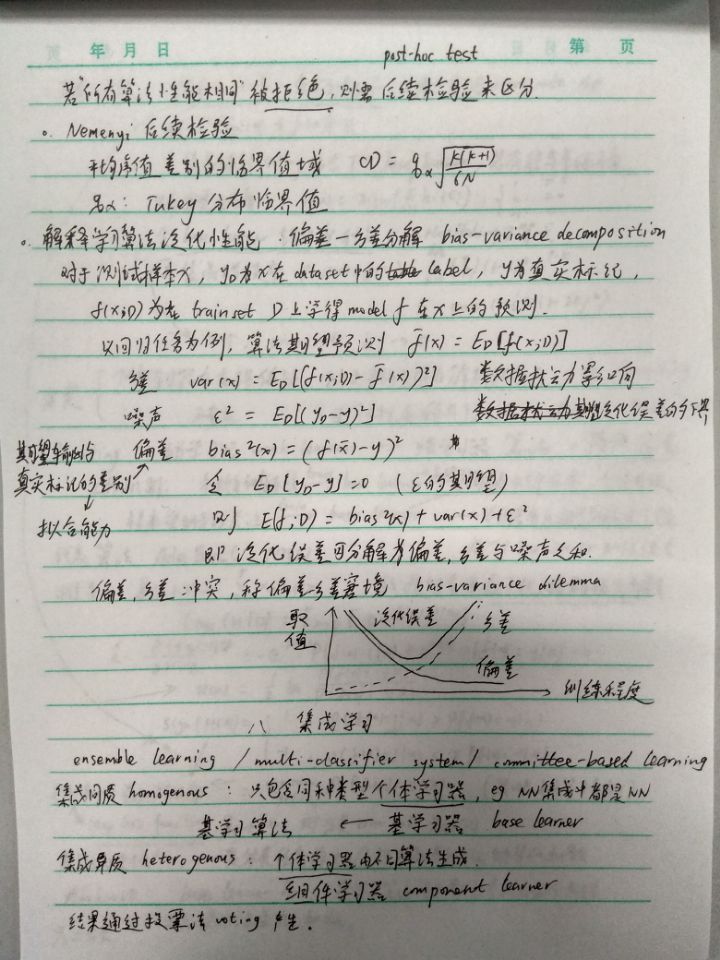 年 月 日 第 页
post-hoc test
若"所有算法性能相同"被拒绝,则需后续检验来区分.
。Nemenyi 后续检验
平均序值差别的临界值域 CD = qα√(k(k+1)/6N)
qα: Tukey 分布临界值
。解释学习算法泛化性能:偏差-方差分解 bias-variance decomposition
对于测试样本x, y_D为x在dataset中的label, y为真实标记,
f(x;D)为在trainset D上学得model f 在x上的预测.
以回归任务为例,算法期望预测 f̄(x) = E_D[f(x;D)]
方差 var(x) = E_D[(f(x;D) - f̄(x))²] 数据扰动影响
噪声 ε² = E_D[(y_D-y)²]
期望输出与 偏差 bias²(x) = (f(x̄)-y)²
真实标记的差别 令 E_D[y_D-y]=0 (ε的期望)
拟合能力 则 E(f;D) = bias²(x) + var(x) + ε²
即 泛化误差可分解为偏差,方差与噪声之和.
偏差,方差冲突,称偏差方差窘境 bias-variance dilemma
取值 泛化误差 方差
偏差 训练程度
八 集成学习
ensemble learning / multi-classifier system / committee-based learning
集成同质 homogenous: 只包含同种类型个体学习器, eg NN集成中都是NN
基学习算法 ← 基学习器 base learner
集成异质 heterogenous: 个体学习器由不同算法生成.
组件学习器 component learner
结果通过投票法 voting 产生.